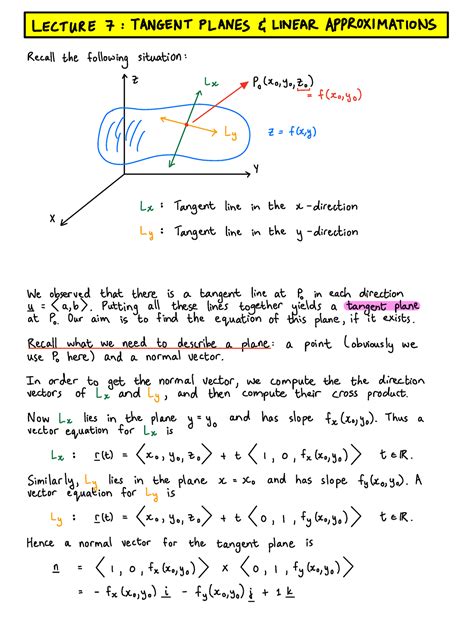 LECTURE 7 : TANGENT PLANES & LINEAR APPROXIMATIONS
Recall the following situation:
z
Lx
P₀(x₀,y₀,z₀)
= f(x₀,y₀)
Ly
z = f(x,y)
y
x
Lx : Tangent line in the x-direction
Ly : Tangent line in the y-direction
We observed that there is a tangent line at P₀ in each direction
u = ⟨a,b⟩. Putting all these lines together yields a tangent plane
at P₀. Our aim is to find the equation of this plane, if it exists.
Recall what we need to describe a plane: a point (obviously we
use P₀ here) and a normal vector.
In order to get the normal vector, we compute the the direction
vectors of Lx and Ly, and then compute their cross product.
Now Lx lies in the plane y = y₀ and has slope fx(x₀,y₀). Thus a
vector equation for Lx is
Lx : r(t) = ⟨x₀, y₀, z₀⟩ + t ⟨1, 0, fx(x₀,y₀)⟩ t ∈ ℝ.
Similarly, Ly lies in the plane x = x₀ and has slope fy(x₀,y₀). A
vector equation for Ly is
Ly : r(t) = ⟨x₀, y₀, z₀⟩ + t ⟨0, 1, fy(x₀,y₀)⟩ t ∈ ℝ.
Hence a normal vector for the tangent plane is
n = ⟨1, 0, fx(x₀,y₀)⟩ × ⟨0, 1, fy(x₀,y₀)⟩
= - fx(x₀,y₀) i - fy(x₀,y₀) j + 1 k